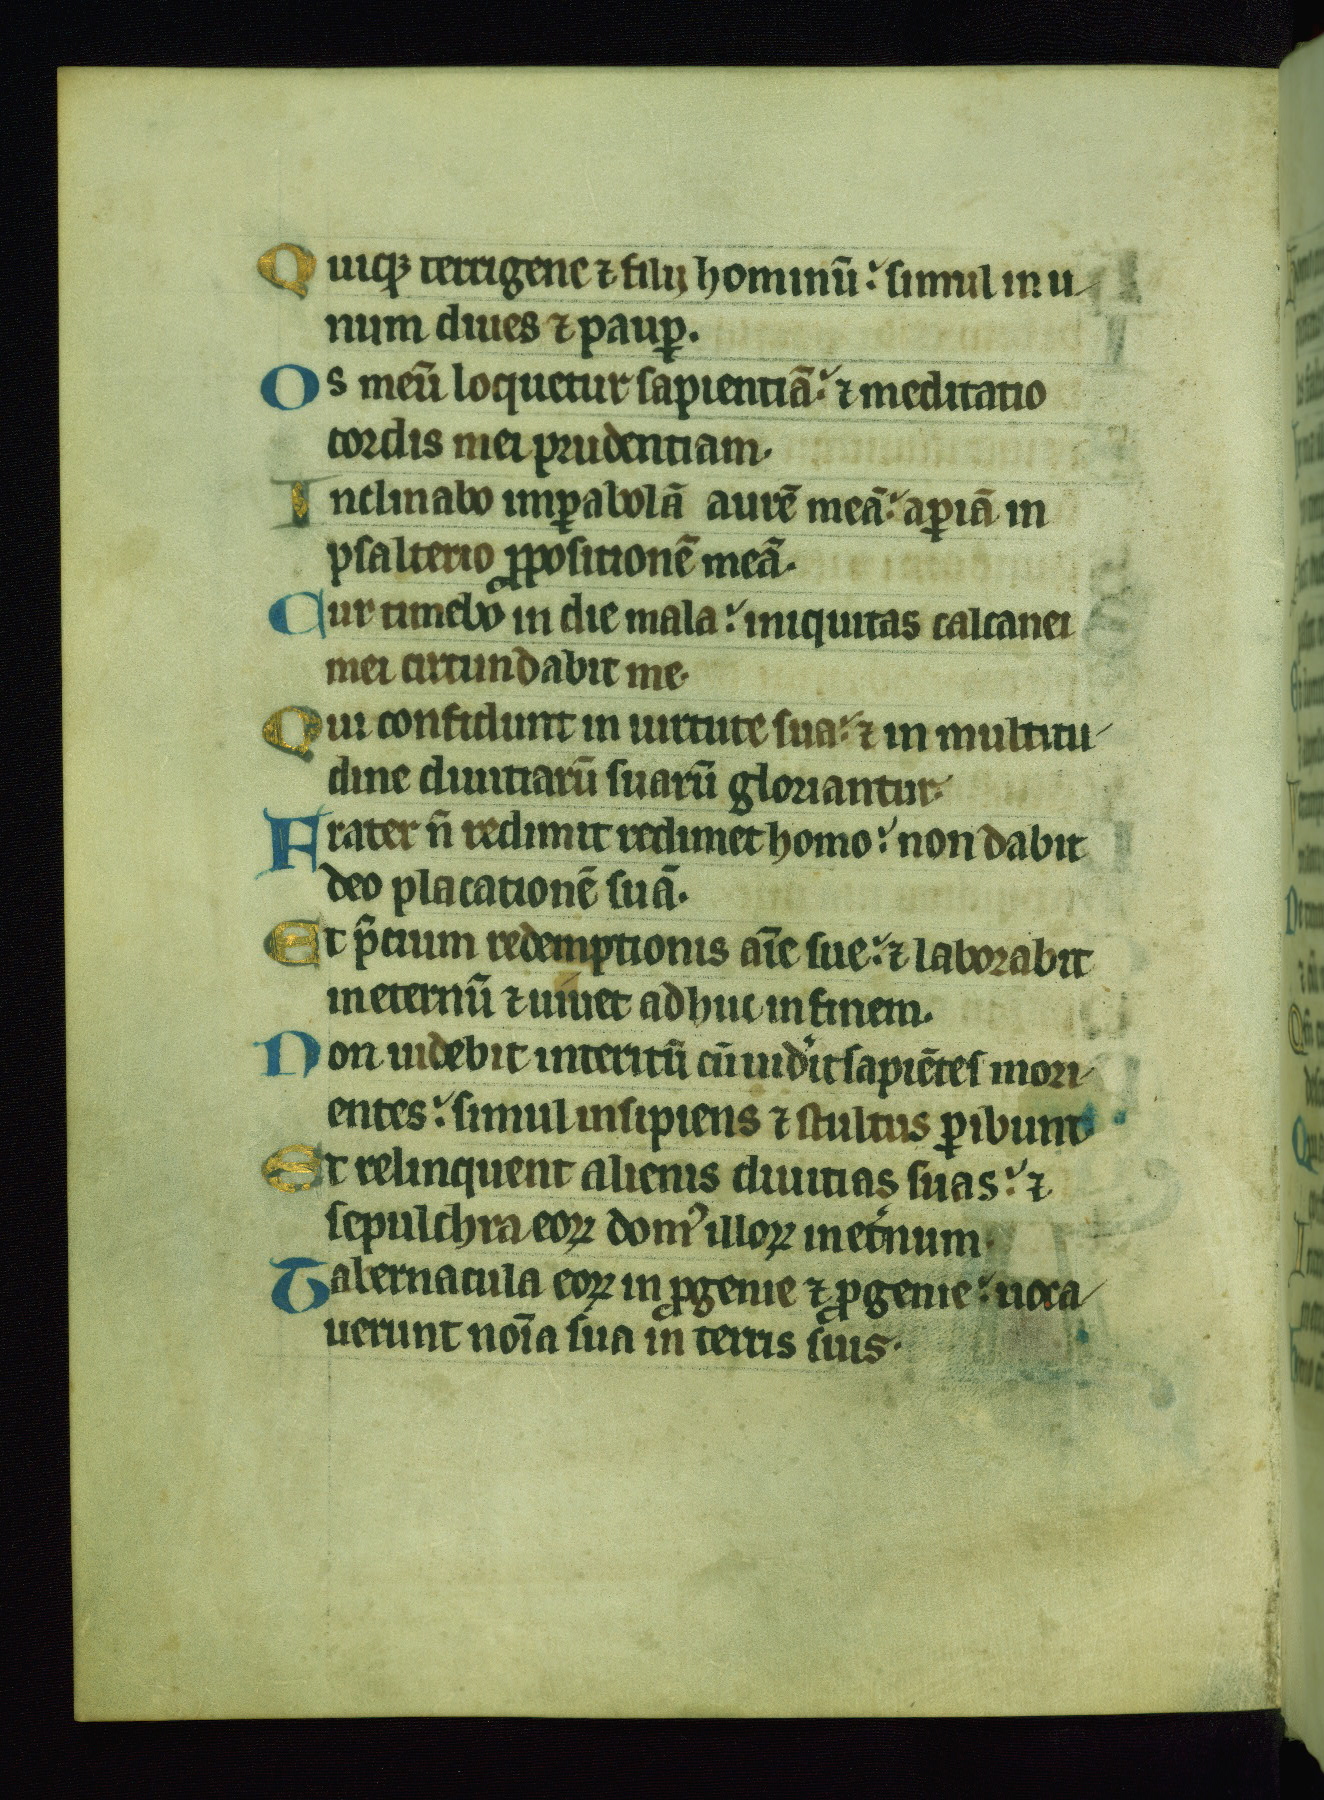 Quiqꝫ terrigene ⁊ filij hominū: simul in u
num diues ⁊ paup̱.
Os meū loquetur sapientiā: ⁊ meditatio
cordis mei prudentiam.
Inclinabo in p̱abolā aurē meā: ap̱iā in
psalterio ꝓpositionē meā.
Cur timebo in die mala: iniquitas calcanei
mei circundabit me.
Qui confidunt in uirtute sua: ⁊ in multitu
dine diuitiarū suarū gloriantur.
Frater n̄ redimit redimet homo: non dabit
deo placationē suā.
Et p̄cium redemptionis aīe sue: ⁊ laborabit
in eternū ⁊ uiuet adhuc in finem.
Non uidebit interitū cū uid̓it sapiētes mori
entes: simul insipiens ⁊ stultus p̱ibunt
Et relinquent alienis diuitias suas: ⁊
sepulchra eoꝝ dom᾽ illoꝝ in et̓num.
Tabernacula eoꝝ in ꝓgenie ⁊ ꝓgenie: uoca
uerunt noīa sua in terris suis.